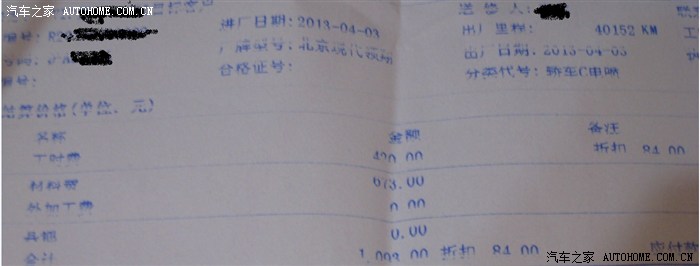 汽车之家 AUTOHOME.COM.CN
进厂日期:2013-04-03
送修人:
编号:
厂牌型号:北京现代
出厂里程: 40152 KM
出厂日期:2013-04-03
合格证号:
分类代号:轿车C电喷
结算价格(单位:元)
名称 金额 备注
工时费 420.00 折扣 84.00
材料费 673.00
外加工费 0.00
其他 0.00
合计 1,093.00 折扣 84.00 应付款
汽车之家 AUTOHOME.COM.CN